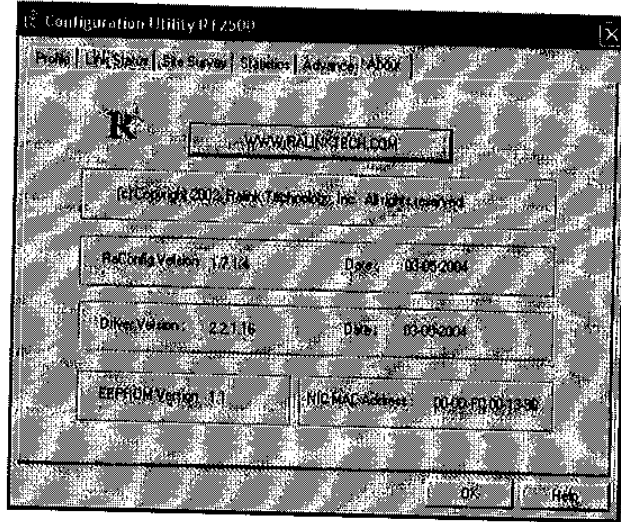 Configuration Utility RT2500
Profile Link Status Site Survey Statistics Advance About
R
WWW.RALINKTECH.COM
(c) Copyright 2003, Ralink Technology, Inc. All rights reserved.
RaConfig Version : Date : 03-05-2004
Driver Version : 2.2.1.16 Date : 03-05-2004
EEPROM Version : 1.1 NIC MAC Address :
OK Help